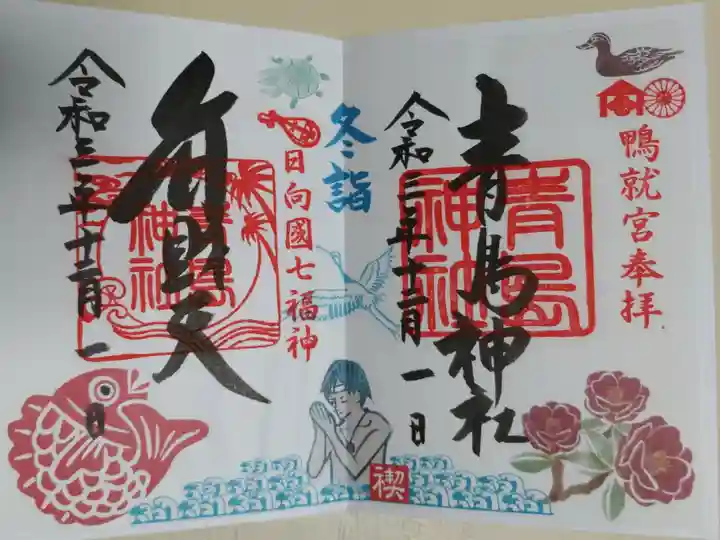 鴨就宮奉拝
青島神社
青島神社
令和三年十二月一日
冬詣
禊
日向國七福神
弁財天
青島神社
令和三年十二月一日